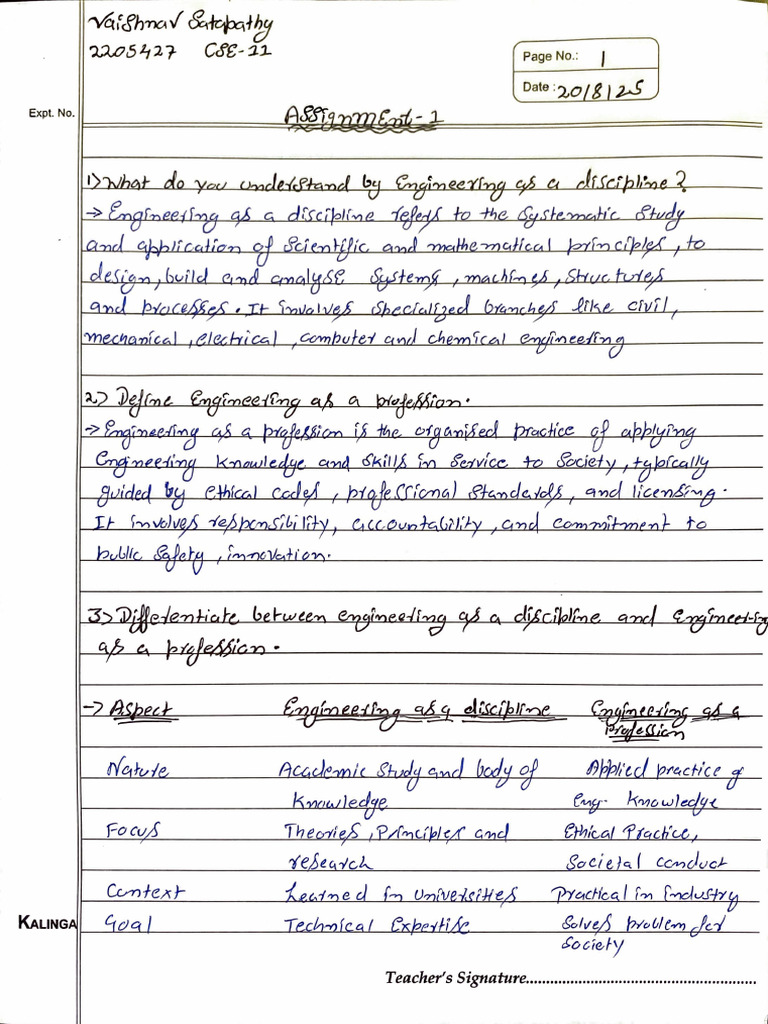 Vaishnav Satapathy
2205427 CSE-11
Page No.: 1
Date: 20/8/25
Expt. No.
Assignment-1
1) What do you understand by Engineering as a discipline?
→ Engineering as a discipline refers to the systematic study
and application of scientific and mathematical principles, to
design, build and analyse systems, machines, structures
and processes. It involves specialized branches like civil,
mechanical, electrical, computer and chemical engineering
2) Define Engineering as a profession.
→ Engineering as a profession is the organised practice of applying
Engineering knowledge and skills in service to society, typically
guided by ethical codes, professional standards, and licensing.
It involves responsibility, accountability, and commitment to
public safety, innovation.
3) Differentiate between engineering as a discipline and Engineering
as a profession.
→ Aspect Engineering as a discipline Engineering as a
profession
Nature Academic study and body of Applied practice of
knowledge Eng. knowledge
Focus Theories, Principles and Ethical Practice,
research Societal conduct
Context Learned in Universities Practical in industry
Goal Technical Expertise Solves problem for
society
KALINGA
Teacher's Signature..........................................................